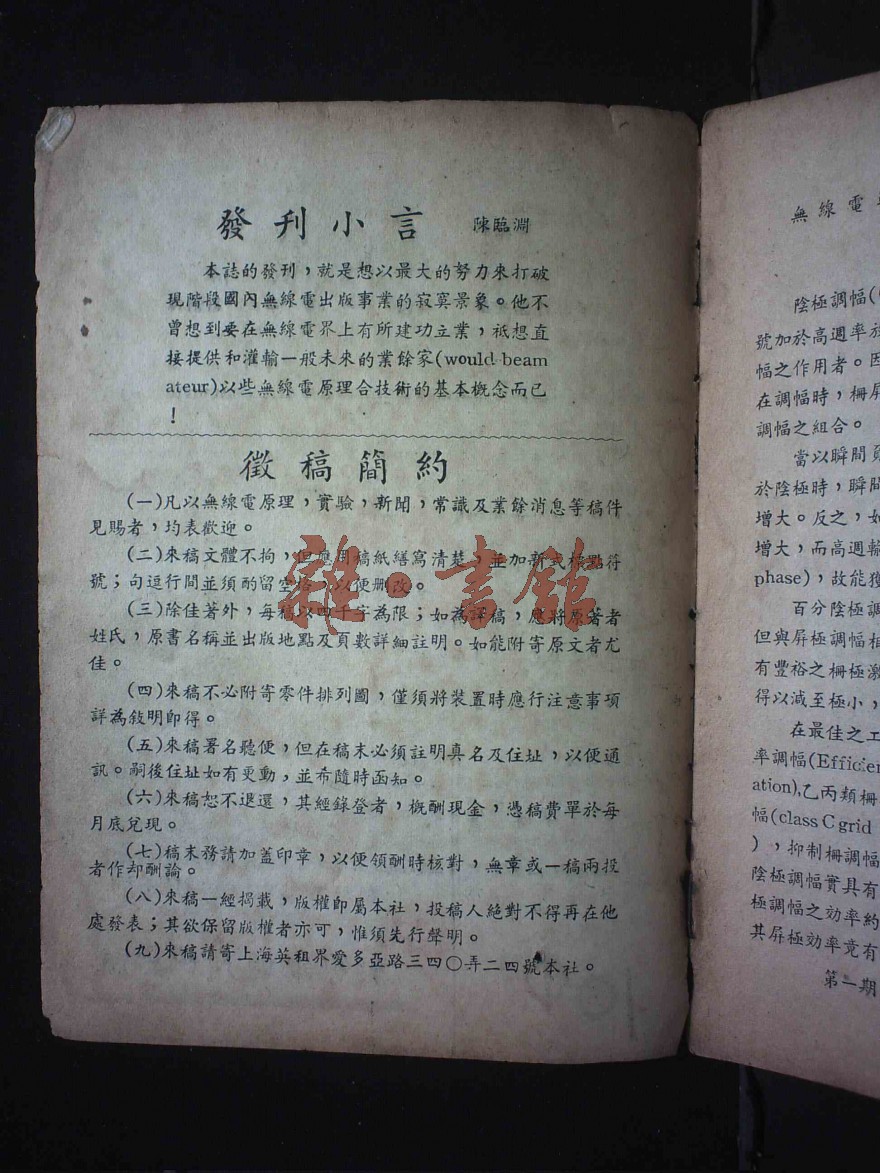 發刊小言 陳臨淵
本誌的發刊，就是想以最大的努力來打破
現階段國內無線電出版事業的寂寞景象。他不
曾想到要在無線電界上有所建功立業，祗想直
接提供和灌輸一般未來的業餘家(would beam
ateur)以些無線電原理合技術的基本概念而已
！
徵稿簡約
(一)凡以無線電原理，實驗，新聞，常識及業餘消息等稿件
見賜者，均表歡迎。
(二)來稿文體不拘，但應用稿紙繕寫清楚，並加新式標點符
號；向逗行間並須酌留空格，以便刪改。
(三)除佳著外，每稿以四千字為限；如為譯稿，應將原著者
姓氏，原書名稱並出版地點及頁數詳細註明。如能附寄原文者尤
佳。
(四)來稿不必附寄零件排列圖，僅須將裝置時應行注意事項
詳為敍明卽得。
(五)來稿署名聽便，但在稿末必須註明真名及住址，以便通
訊。嗣後住址如有更動，並希隨時函知。
(六)來稿恕不退還，其經錄登者，概酬現金，憑稿費單於每
月底兌現。
(七)稿末務請加蓋印章，以便領酬時核對，無章或一稿兩投
者作却酬論。
(八)來稿一經揭載，版權卽屬本社，投稿人絕對不得再在他
處發表；其欲保留版權者亦可，惟須先行聲明。
(九)來稿請寄上海英租界愛多亞路三四〇弄二四號本社。
雜·書館
無線電
陰極調幅(
號加於高週率放
幅之作用者。因
在調幅時，柵屏
調幅之組合。
當以瞬間
於陰極時，瞬間
增大。反之，如
增大，而高週輸
phase)，故能獲
百分陰極調
但與屏極調幅相
有豐裕之柵極激
得以減至極小，
在最佳之工
率調幅(Efficien
ation),乙丙類柵
幅(class C grid
)，抑制柵調幅
陰極調幅實具有
極調幅之效率約
其屏極效率竟有
第一期